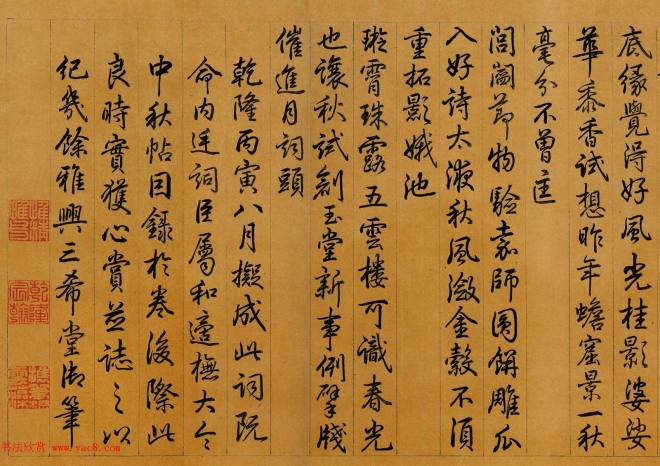 底缘覺得好風光桂影婆娑
華黍香試想昨年蟾窟景一秋
毫分不曾差
閶闔節物驗嘉師圓餅雕瓜
入好詩太液秋風瀲金縠不須
重拓影娥池
璇霄珠露五雲樓可識春光
也讓秋試創玉堂新事例擘牋
催進月詞頭
乾隆丙寅八月擬成此詞既
命内廷詞臣屬和適撫大令
中秋帖因錄於卷後際此
良時實獲心賞並誌之以
紀幾餘雅興三希堂御筆
乾隆
书法欣赏 www.yac8.com